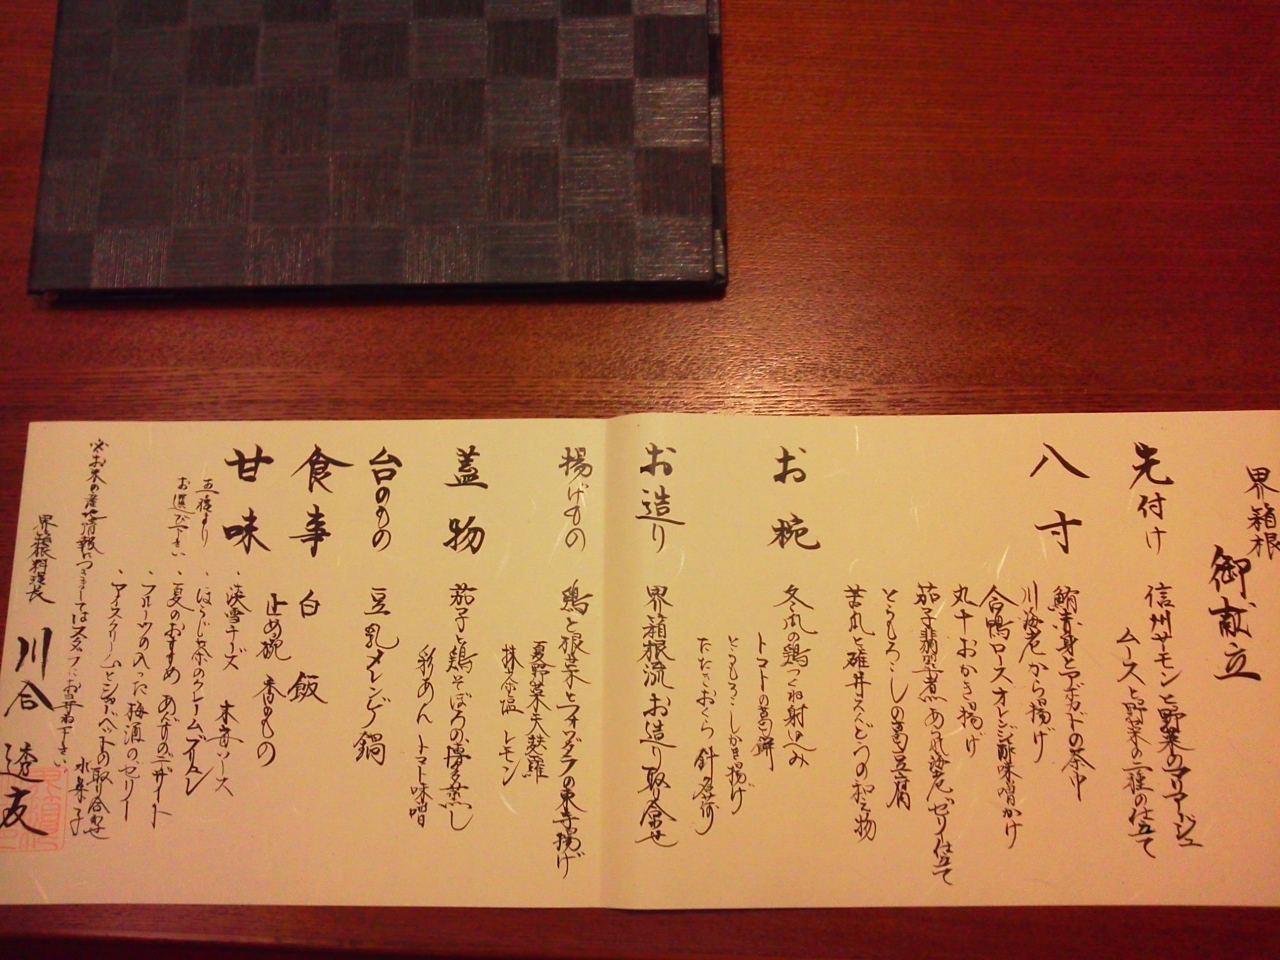 界 箱根
御献立
先付け 信州サーモンと野菜のマリアージュ
ムースと野菜の二種の仕立て
八寸 鮪赤身とアボガドの茶巾
川海老から揚げ
合鴨ロースオレンジ酢味噌かけ
丸十おかき揚げ
茄子翡翠煮あられ海老ゼリー仕立て
とうもろこしの葛豆腐
苦瓜と雑丼ぶどうの和え物
お椀 冬瓜の鶏つくね射込み
トマトの葛餅
とうもろこしかき揚げ
たたきおくら 針茗荷
お造り 界箱根流 お造り取り合わせ
揚げもの 鶏と根菜とフォアグラの東寺揚げ
夏野菜天麩羅
抹茶塩 レモン
蓋物 茄子と鶏そぼろの博多蒸し
彩あん トマト味噌
台のもの 豆乳メレンゲ鍋
食事 白飯
止め椀 香のもの
甘味 ・淡雪チーズ 木苺ソース
五種より
お選び下さい
・ほうじ茶のクレームブリュレ
・夏のおすすめ あんずのデザート
・フルーツの入った梅酒のゼリー
・アイスクリームとシャーベットの取り合わせ
水菓子
※お米の産地情報につきましてはスタッフにお尋ね下さい。
界箱根料理長 川合 達友